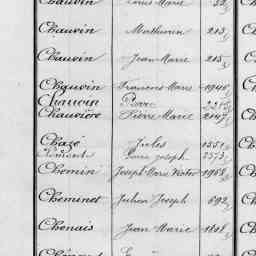 Chauvin Louis Marie
Chauvin Mathurin 213
Chauvin Jean Marie 215
Chauvin François Marie 1946
Chauvin Pierre
Chauvière Pierre Marie 2147
Chazé Jules 1551
Joseph
Chemin Joseph Marie Victor 1968
Cheminet Julien Joseph 692
Chenais Jean Marie 1808